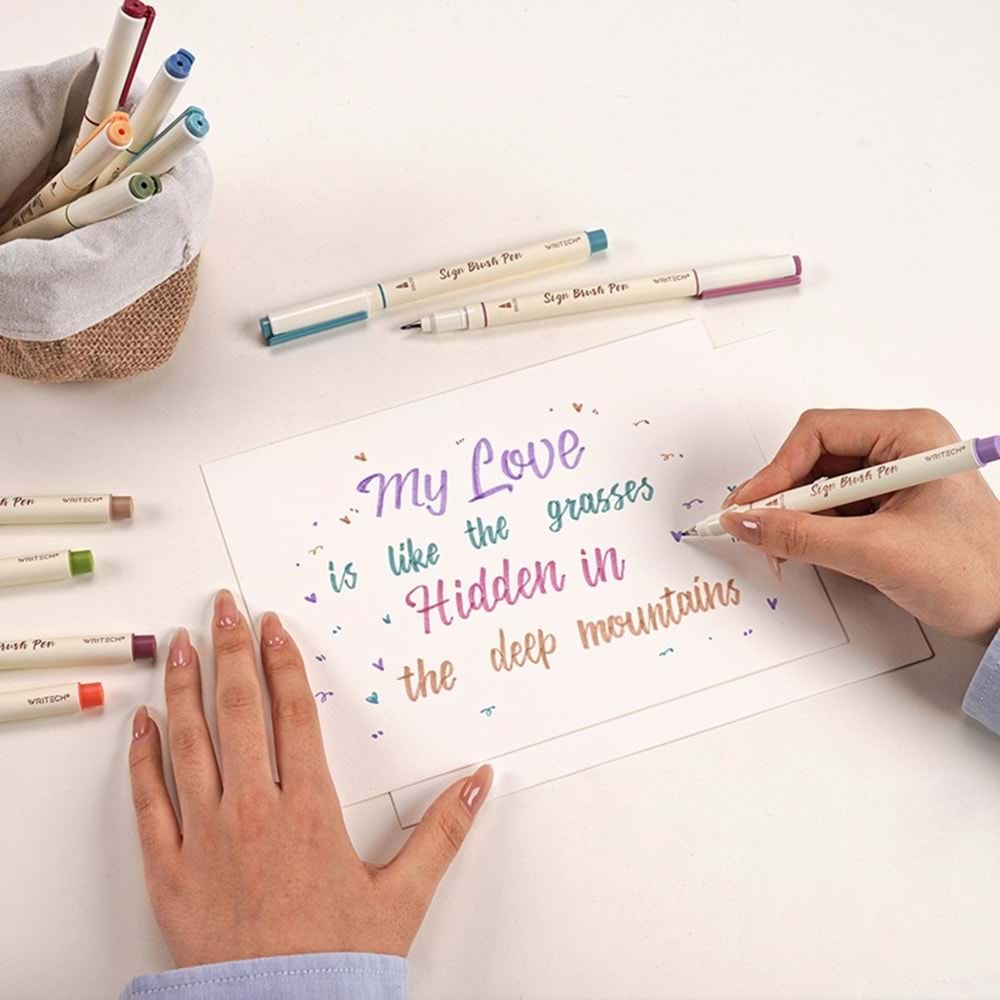 Sign Brush Pen WRITECH
Sign Brush Pen WRITECH
My Love
is like the grasses
Hidden in
the deep mountains
Sign Brush Pen WRITECH
Pen WRITECH
WRITECH
Brush Pen WRITECH
WRITECH